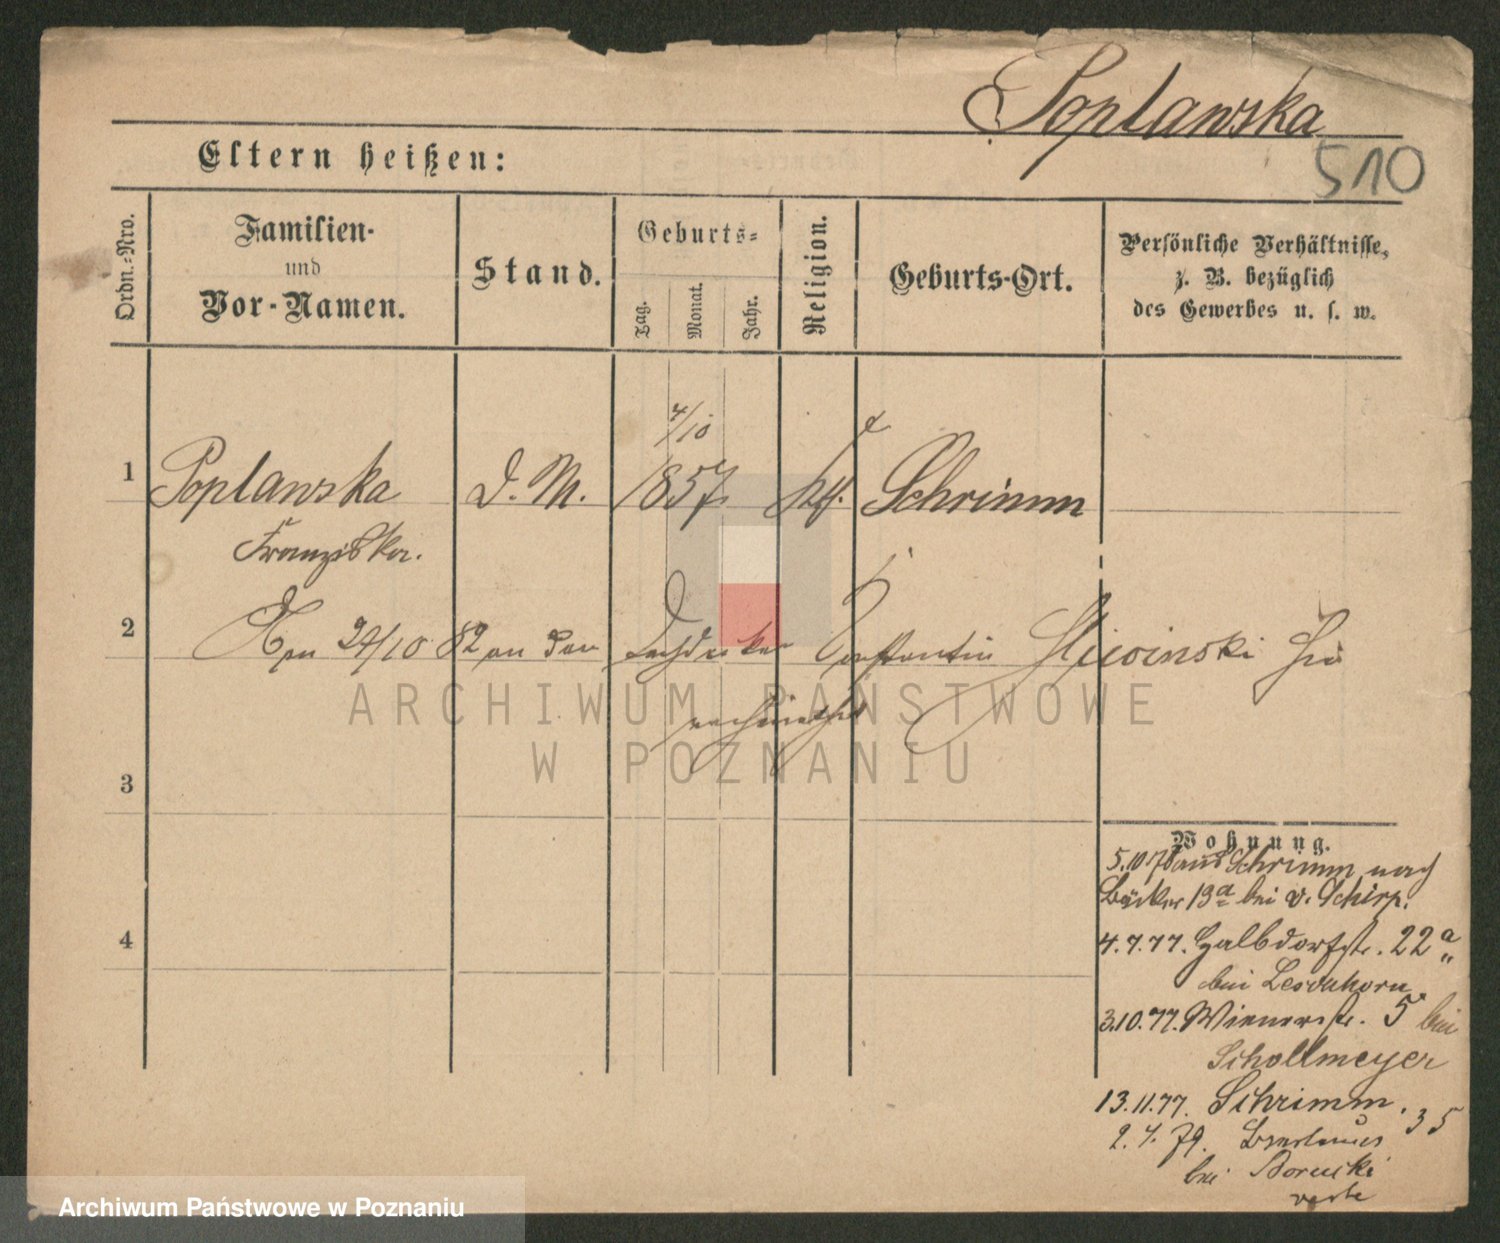 Poplawska
510
Eltern heißen:
Ordn.-Nro.
Familien-
und
Vor-Namen.
Stand.
Geburts-
Tag.
Monat.
Jahr.
Religion.
Geburts-Ort.
Persönliche Verhältnisse,
z. B. bezüglich
des Gewerbes u. s. w.
4/10
1 Poplawska D. M. 1857 kth. Schrimm
Franziska.
2 24/10 82 an den Dachdecker Constantin
verheirathet
3
4
Wohnung.
5.10 76 aus Schrimm nach
Bäcker 13a bei v. Schirp.
4.7.77. Halbdorfstr. 22a
bei
3.10.77. Wienerstr. 5 bei
Schollmeyer
13.11.77. Schrimm.
2.4.79. Breslauer 35
bei
ARCHIWUM PAŃSTWOWE
W POZNANIU
Archiwum Państwowe w Poznaniu